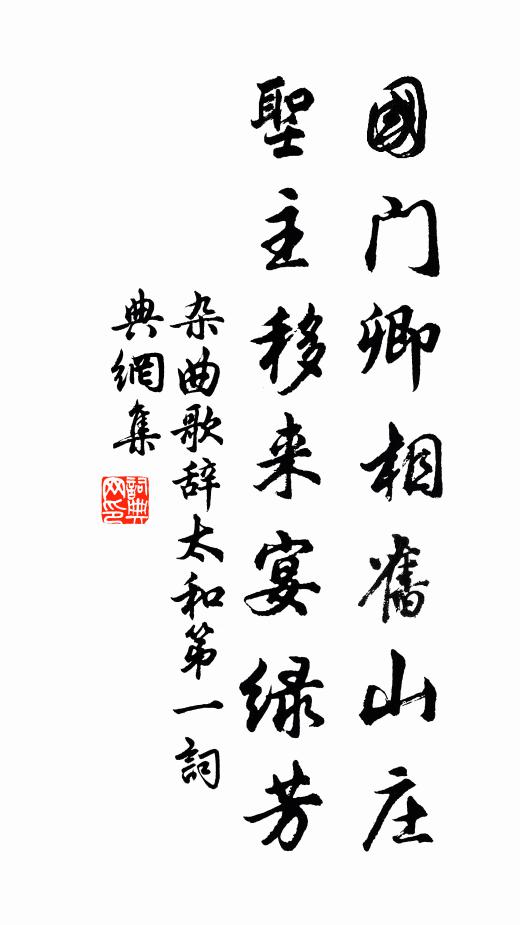 國门卿相舊山庄
聖主移来宴绿芳
杂曲歌辞太和第一詞
典網集
詞典
网印